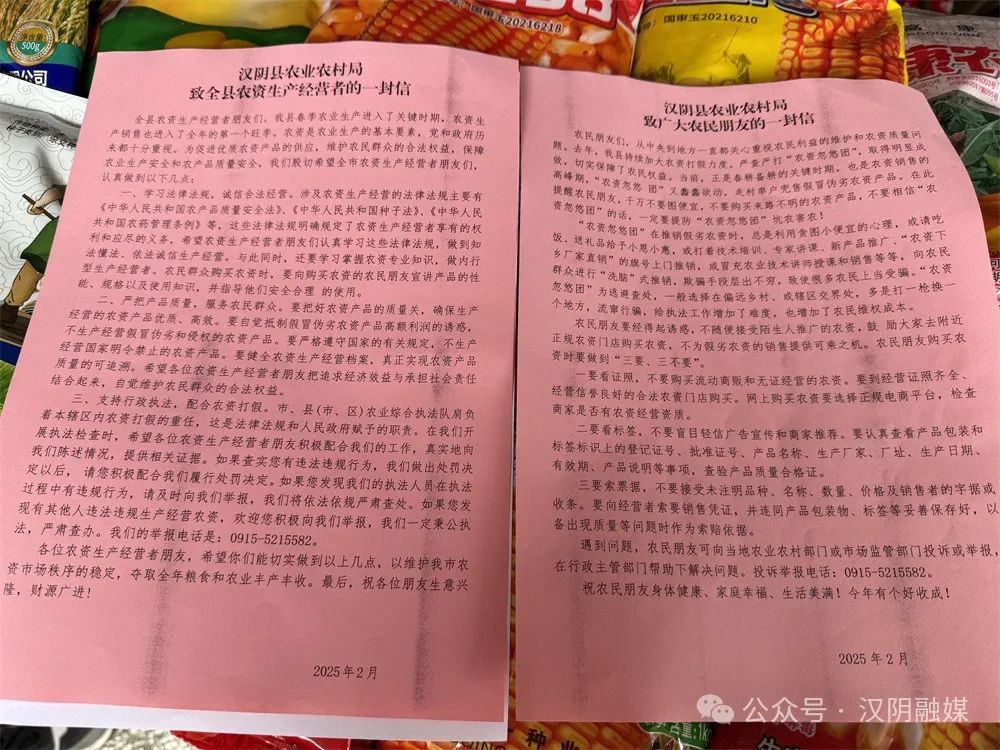 500g
公司
国审玉20216218
国审玉20216210
汉阴县农业农村局
致全县农资生产经营者的一封信
全县农资生产经营者朋友们，我县春季农业生产进入了关键时期，农资生
产销售也进入了全年的第一个旺季。农资是农业生产的基本要素，党和政府历
来都十分重视。为促进优质农资产品的供应，维护农民群众的合法权益，保障
农业生产安全和农产品质量安全，我们殷切希望全市农资生产经营者朋友们，
认真做到以下几点：
一、学习法律法规，诚信合法经营。涉及农资生产经营的法律法规主要有
《中华人民共和国农产品质量安全法》、《中华人民共和国种子法》、《中华人民
共和国农药管理条例》等，这些法律法规明确规定了农资生产经营者享有的权
利和应尽的义务，希望农资生产经营者朋友们认真学习这些法律法规，做到知
法懂法、依法诚信生产经营。与此同时，还要学习掌握农资专业知识，做内行
型生产经营者。农民群众购买农资时，要向购买农资的农民朋友宣讲产品的性
能、规格以及使用知识，并指导他们安全合理 的使用。
二、严把产品质量，服务农民群众。要把好农资产品的质量关，确保生产
经营的农资产品优质、高效。要自觉抵制假冒伪劣农资产品高额利润的诱惑，
不生产经营假冒伪劣和侵权的农资产品。要严格遵守国家的有关规定，不生产
经营国家明令禁止的农资产品。要健全农资生产经营档案，真正实现农资产品
质量的可追溯。希望各位农资生产经营者朋友把追求经济效益与承担社会责任
结合起来，自觉维护农民群众的合法权益。
三、支持行政执法，配合农资打假。市、县(市、区)农业综合执法队肩负
着本辖区内农资打假的重任，这是法律法规和人民政府赋予的职责。在我们开
展执法检查时，希望各位农资生产经营者朋友积极配合我们的工作，真实地向
我们陈述情况，提供相关证据。如果查实您有违法违规行为，我们做出处罚决
定以后， 请您积极配合我们履行处罚决定。如果您发现我们的执法人员在执法
过程中有违规行为，请及时向我们举报，我们将依法依规严肃查处。如果您发
现有其他人违法违规生产经营农资，欢迎您积极向我们举报，我们一定秉公执
法，严肃查办。我们的举报电话是：0915-5215582。
各位农资生产经营者朋友，希望你们能切实做到以上几点，以维护我市农
资市场秩序的稳定，夺取全年粮食和农业丰产丰收。最后，祝各位朋友生意兴
隆，财源广进！
2025年2月
汉阴县农业农村局
致广大农民朋友的一封信
农民朋友们，从中央到地方一直都关心重视农民利益的维护和农资质量问
题。去年，我县持续加大农资打假力度，严查严打“农资忽悠团”，取得明显成
效，切实保障了农民权益。当前，正是春耕备耕的关键时期，也是农资销售的
高峰期，“农资忽悠 团”又蠢蠢欲动，走村串户兜售假冒伪劣农资产品。在此
提醒农民朋友，千万不要图便宜，不要购买来路不明的农资产品，不要相信“农
资忽悠团”的话，一定要提防“农资忽悠团”坑农害农！
“农资忽悠团”在推销假劣农资时，总是利用贪图小便宜的心理，或请吃
饭、送礼品给予小恩小惠，或打着技术培训、专家讲课、新产品推广、“农资下
乡厂家直销”的旗号上门推销，或冒充农业技术讲师授课和销售等等，向农民
群众进行“洗脑”式推销，欺骗手段层出不穷，致使很多农民上当受骗。“农资
忽悠团”为逃避查处，一般选择在偏远乡村、或辖区交界处，多是打一枪换一
个地方，流窜行骗，给执法工作增加了难度，也增加了农民维权成本。
农民朋友要经得起诱惑，不随便接受陌生人推广的农资，鼓 励大家去附近
正规农资门店购买农资，不为假劣农资的销售提供可乘之机。农民朋友购买农
资时要做到“三要、三不要”
一要看证照，不要购买流动商贩和无证经营的农资。要到经营证照齐全、
经营信誉良好的合法农资门店购买。网上购买农资要选择正规电商平台，检查
商家是否有农资经营资质。
二要看标签，不要盲目轻信广告宣传和商家推荐。要认真查看产品包装和
标签标识上的登记证号、批准证号、产品名称、生产厂家、厂址、生产日期、
有效期、产品说明等事项，查验产品质量合格证。
三要索票据，不要接受未注明品种、名称、数量、价格及销售者的字据或
收条。要向经营者索要销售凭证，并连同产品包装物、标签等妥善保存好，以
备出现质量等问题时作为索赔依据。
遇到问题，农民朋友可向当地农业农村部门或市场监管部门投诉或举报，
在行政主管部门帮助下解决问题。投诉举报电话：0915-5215582。
祝农民朋友身体健康、家庭幸福、生活美满！今年有个好收成！
2025年2月
公众号·汉阴融媒